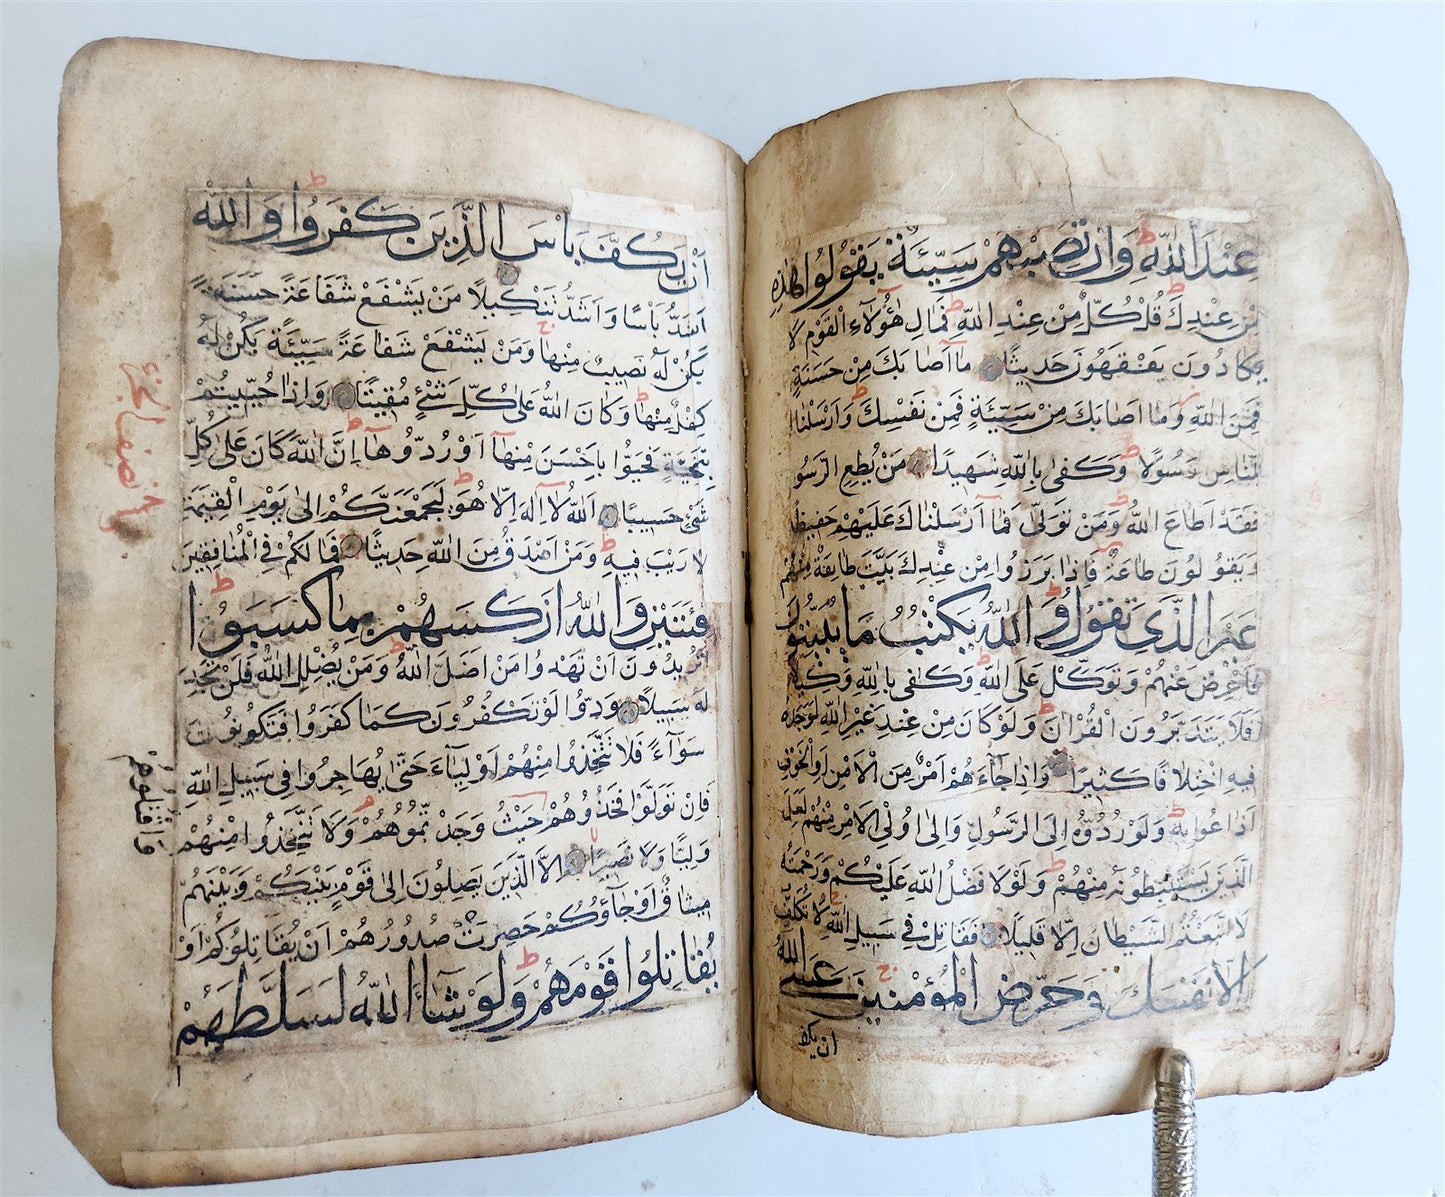 عِنْدَ اللّٰهِ وَاِنْ تُصِبْهُمْ سَيِّئَةٌ يَقُولُوا هٰذِهِ
مِنْ عِنْدِكَ قُلْ كُلٌّ مِنْ عِنْدِ اللّٰهِ فَمَالِ هٰؤُلَاءِ الْقَوْمِ لَا
يَكَادُونَ يَفْقَهُونَ حَدِيثًا مَا اَصَابَكَ مِنْ حَسَنَةٍ
فَمِنَ اللّٰهِ وَمَا اَصَابَكَ مِنْ سَيِّئَةٍ فَمِنْ نَفْسِكَ وَاَرْسَلْنَا
لِلنَّاسِ رَسُولًا وَكَفٰى بِاللّٰهِ شَهِيدًا مَنْ يُطِعِ الرَّسُو
فَقَدْ اَطَاعَ اللّٰهَ وَمَنْ تَوَلّٰى فَمَا اَرْسَلْنَاكَ عَلَيْهِمْ حَفِيظًا
وَيَقُولُونَ طَاعَةٌ فَاِذَا بَرَزُوا مِنْ عِنْدِكَ بَيَّتَ طَائِفَةٌ مِنْهُمْ
غَيْرَ الَّذِي تَقُولُ وَاللّٰهُ يَكْتُبُ مَا يُبَيِّتُونَ
فَاَعْرِضْ عَنْهُمْ وَتَوَكَّلْ عَلَى اللّٰهِ وَكَفٰى بِاللّٰهِ وَكِيلًا
اَفَلَا يَتَدَبَّرُونَ الْقُرْاٰنَ وَلَوْ كَانَ مِنْ عِنْدِ غَيْرِ اللّٰهِ لَوَجَدُوا
فِيهِ اخْتِلَافًا كَثِيرًا وَاِذَا جَاءَهُمْ اَمْرٌ مِنَ الْاَمْنِ اَوِ الْخَوْفِ
اَذَاعُوا بِهِ وَلَوْ رَدُّوهُ اِلَى الرَّسُولِ وَاِلٰى اُولِي الْاَمْرِ مِنْهُمْ لَعَلِمَهُ
الَّذِينَ يَسْتَنْبِطُونَهُ مِنْهُمْ وَلَوْلَا فَضْلُ اللّٰهِ عَلَيْكُمْ وَرَحْمَتُهُ
لَاتَّبَعْتُمُ الشَّيْطَانَ اِلَّا قَلِيلًا فَقَاتِلْ فِي سَبِيلِ اللّٰهِ لَا تُكَلَّفُ
اِلَّا نَفْسَكَ وَحَرِّضِ الْمُؤْمِنِينَ عَسَى اللّٰهُ
ان يكف
اَنْ يَكُفَّ بَاْسَ الَّذِينَ كَفَرُوا وَاللّٰهُ
اَشَدُّ بَاْسًا وَاَشَدُّ تَنْكِيلًا مَنْ يَشْفَعْ شَفَاعَةً حَسَنَةً
يَكُنْ لَهُ نَصِيبٌ مِنْهَا وَمَنْ يَشْفَعْ شَفَاعَةً سَيِّئَةً يَكُنْ لَهُ
كِفْلٌ مِنْهَا وَكَانَ اللّٰهُ عَلٰى كُلِّ شَيْءٍ مُقِيتًا وَاِذَا حُيِّيتُمْ
بِتَحِيَّةٍ فَحَيُّوا بِاَحْسَنَ مِنْهَا اَوْ رُدُّوهَا اِنَّ اللّٰهَ كَانَ عَلٰى كُلِّ
شَيْءٍ حَسِيبًا اَللّٰهُ لَا اِلٰهَ اِلَّا هُوَ لَيَجْمَعَنَّكُمْ اِلٰى يَوْمِ الْقِيٰمَةِ
لَا رَيْبَ فِيهِ وَمَنْ اَصْدَقُ مِنَ اللّٰهِ حَدِيثًا فَمَا لَكُمْ فِي الْمُنَافِقِينَ
فِئَتَيْنِ وَاللّٰهُ اَرْكَسَهُمْ بِمَا كَسَبُوا
اَتُرِيدُونَ اَنْ تَهْدُوا مَنْ اَضَلَّ اللّٰهُ وَمَنْ يُضْلِلِ اللّٰهُ فَلَنْ تَجِدَ
لَهُ سَبِيلًا وَدُّوا لَوْ تَكْفُرُونَ كَمَا كَفَرُوا فَتَكُونُونَ
سَوَاءً فَلَا تَتَّخِذُوا مِنْهُمْ اَوْلِيَاءَ حَتّٰى يُهَاجِرُوا فِي سَبِيلِ اللّٰهِ
فَاِنْ تَوَلَّوْا فَخُذُوهُمْ حَيْثُ وَجَدْتُمُوهُمْ وَلَا تَتَّخِذُوا مِنْهُمْ
وَاقْتُلُوهُمْ
وَلِيًّا وَلَا نَصِيرًا اِلَّا الَّذِينَ يَصِلُونَ اِلٰى قَوْمٍ بَيْنَكُمْ وَبَيْنَهُمْ
مِيثَاقٌ اَوْ جَاؤُكُمْ حَصِرَتْ صُدُورُهُمْ اَنْ يُقَاتِلُوكُمْ اَوْ
يُقَاتِلُوا قَوْمَهُمْ وَلَوْ شَاءَ اللّٰهُ لَسَلَّطَهُمْ